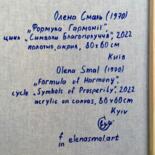 Олена Смаль (1970)
„Формула Гармонії"
цикл „Символи Благополуччя", 2022
полотно, акрил, 80х60 см
Київ
Olena Smal (1970)
„Formula of Harmony"
cycle „Symbols of Prosperity", 2022
acrylic on canvas, 80x60cm
Kyiv
f
in elenasmal.art